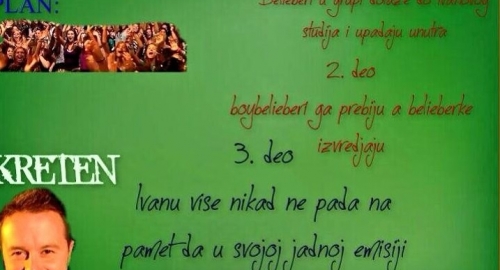 PLAN:
Belieberi u grupi dolaze do Ivanovog
studija i upadaju unutra
2. deo
boybelieberi ga prebiju a belieberke
izvredjaju
3. deo
KRETEN
Ivanu vise nikad ne pada na
pamet da u svojoj jadnoj emisiji